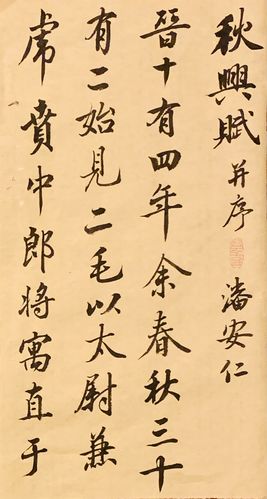 秋興賦 并序 潘安仁
晉十有四年余春秋三十
有二始見二毛以太尉兼
虎賁中郎將寓直于